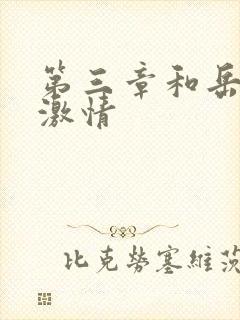 第三章和岳
激情
比克劳塞維茨